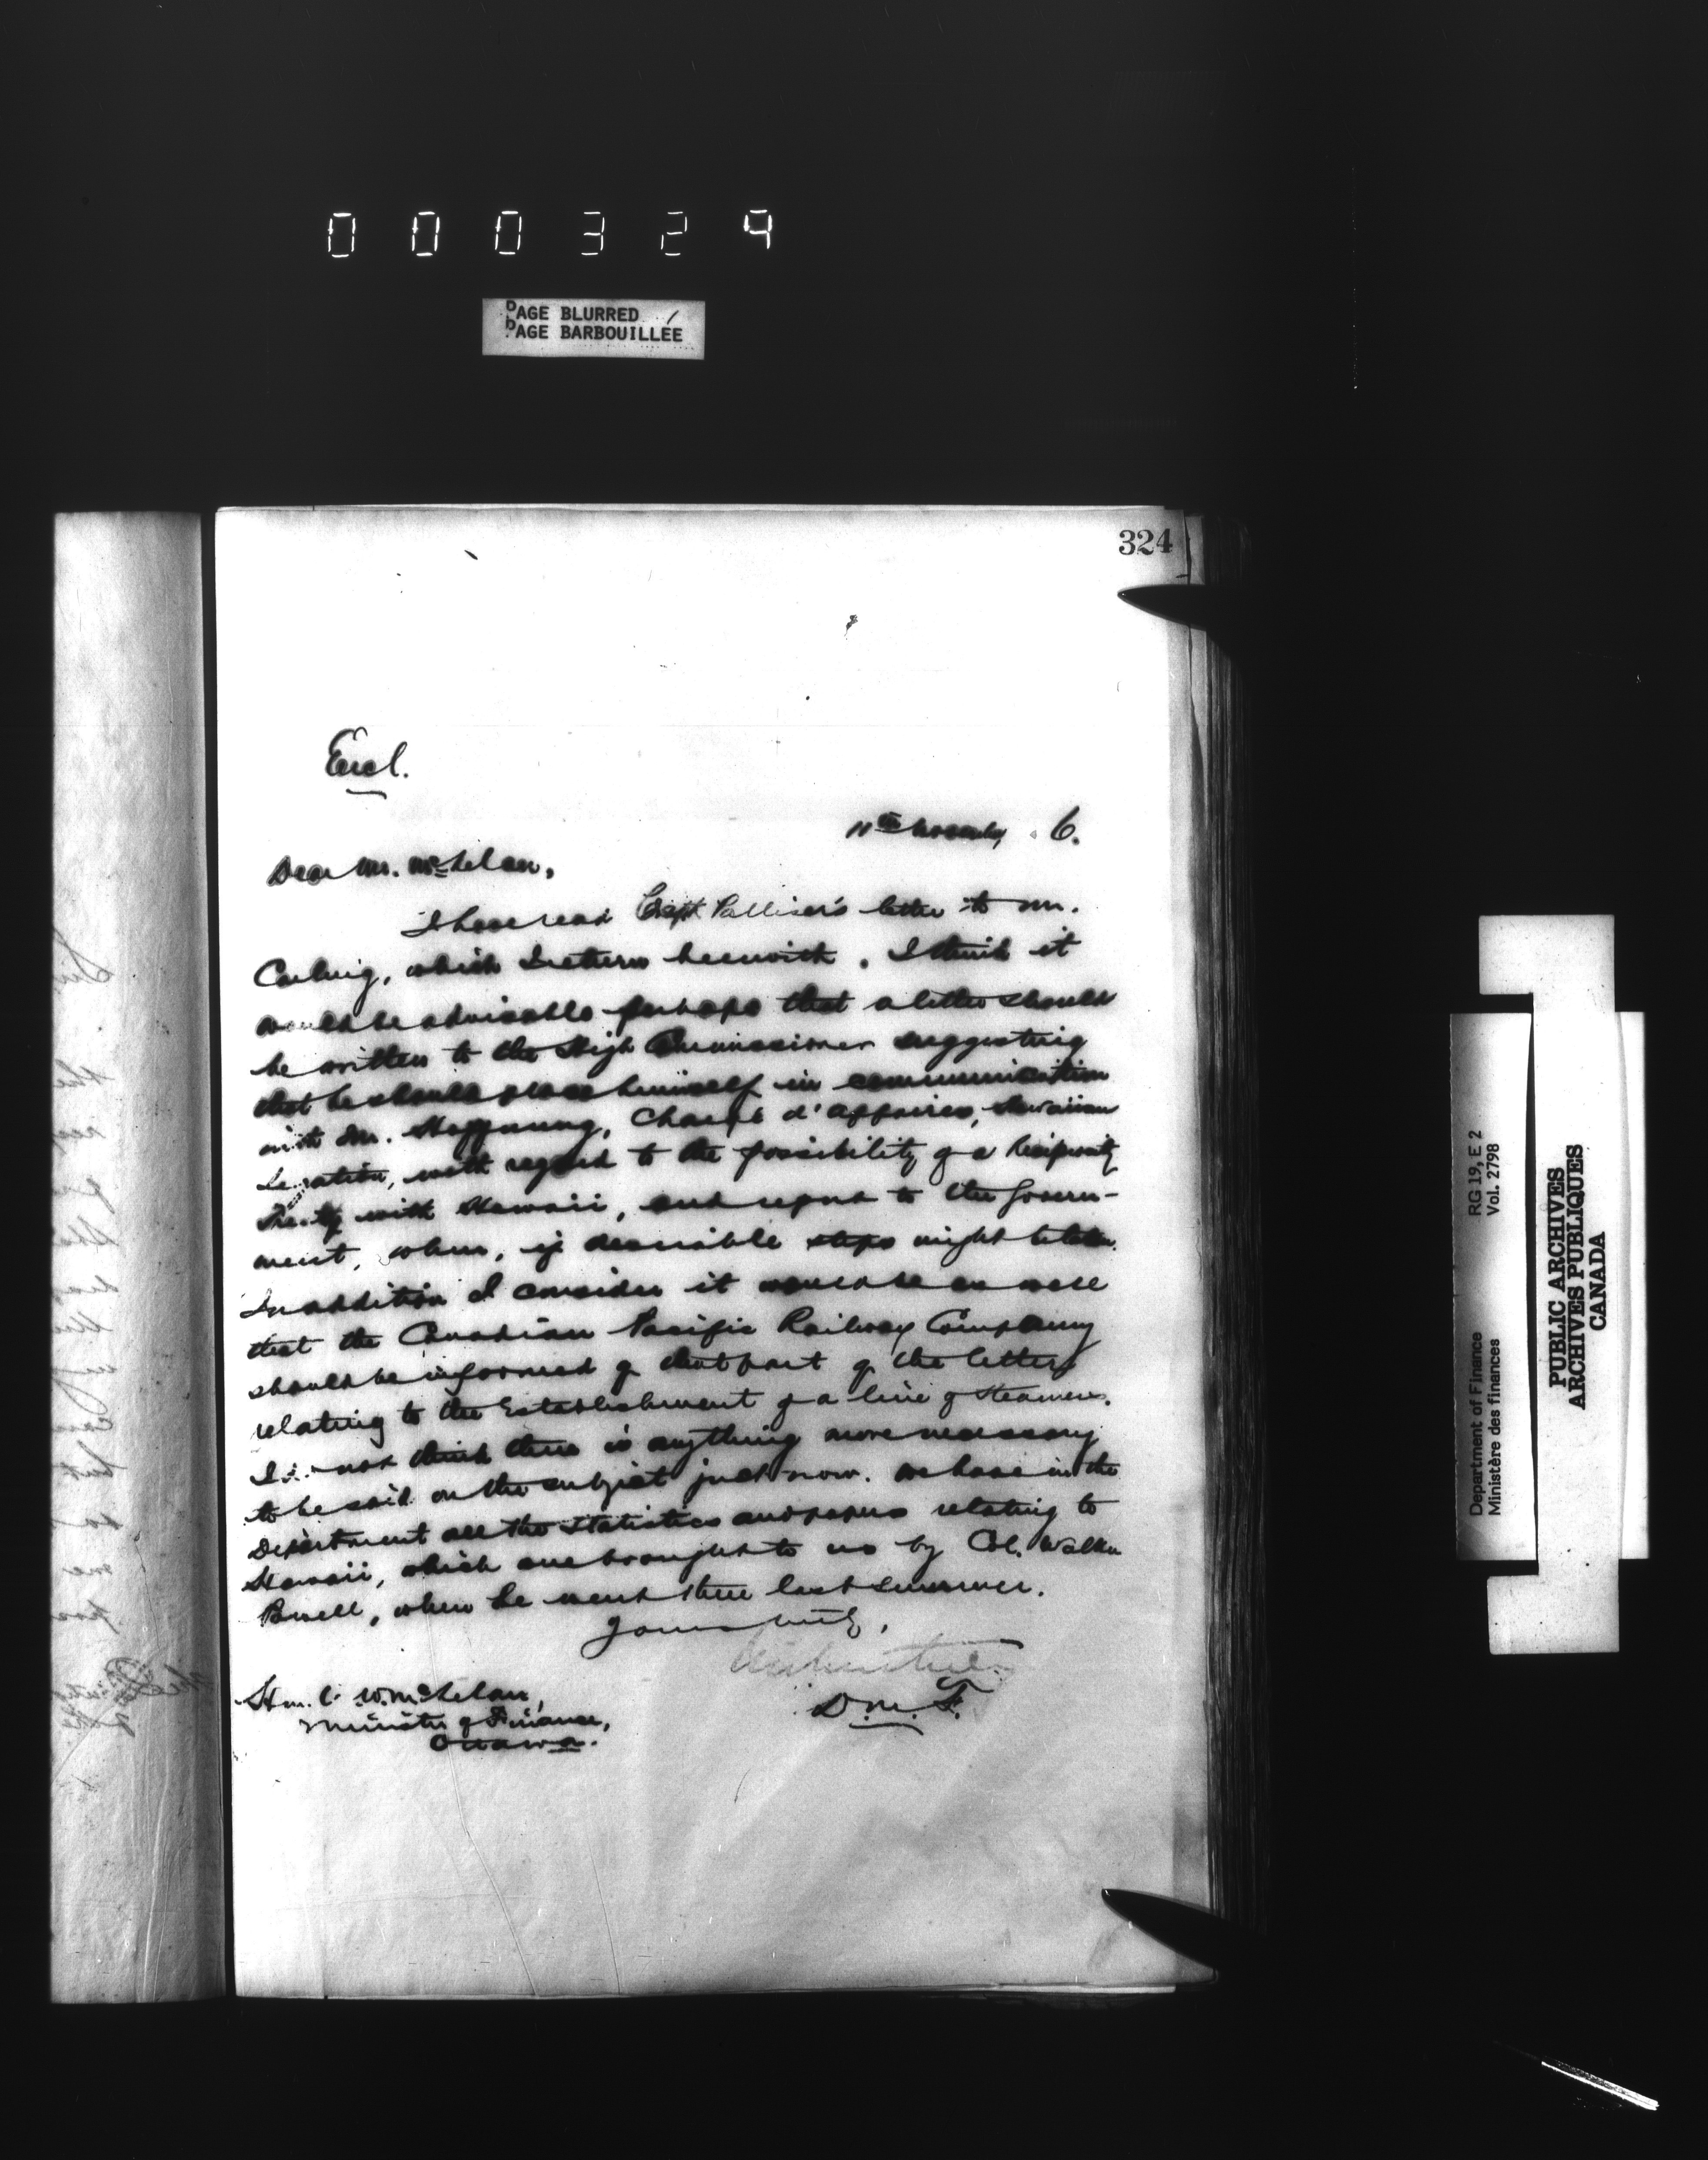 000324
PAGE BLURRED
PAGE BARBOUILLÉE
324
Encl.
11th November 6.
Dear Mr. McLelan,
I have read Capt Palliser's letter to Mr.
Carling, which I return herewith. I think it
would be advisable perhaps that a letter should
be written to the High Commissioner suggesting
that he should place himself in communication
with Mr. Hoffnung, Chargé d'affaires, Hawaiian
Legation, with regard to the possibility of a Reciprocity
Treaty with Hawaii, and report to the Govern-
ment, when, if desirable steps might be taken.
In addition I consider it would be as well
that the Canadian Pacific Railway Company
should be informed of that part of the letter
relating to the Establishment of a line of steamers.
I do not think there is anything more necessary
to be said on the subject just now. We have in the
Department all the statistics and papers relating to
Hawaii, which were brought to us by Col. Walker
Powell, when he went there last summer.
Yours truly,
D.M.F.
Hon. A. W. McLelan,
Minister of Finance,
Ottawa.
Department of Finance RG 19, E 2
Ministère des finances Vol. 2798
PUBLIC ARCHIVES
ARCHIVES PUBLIQUES
CANADA